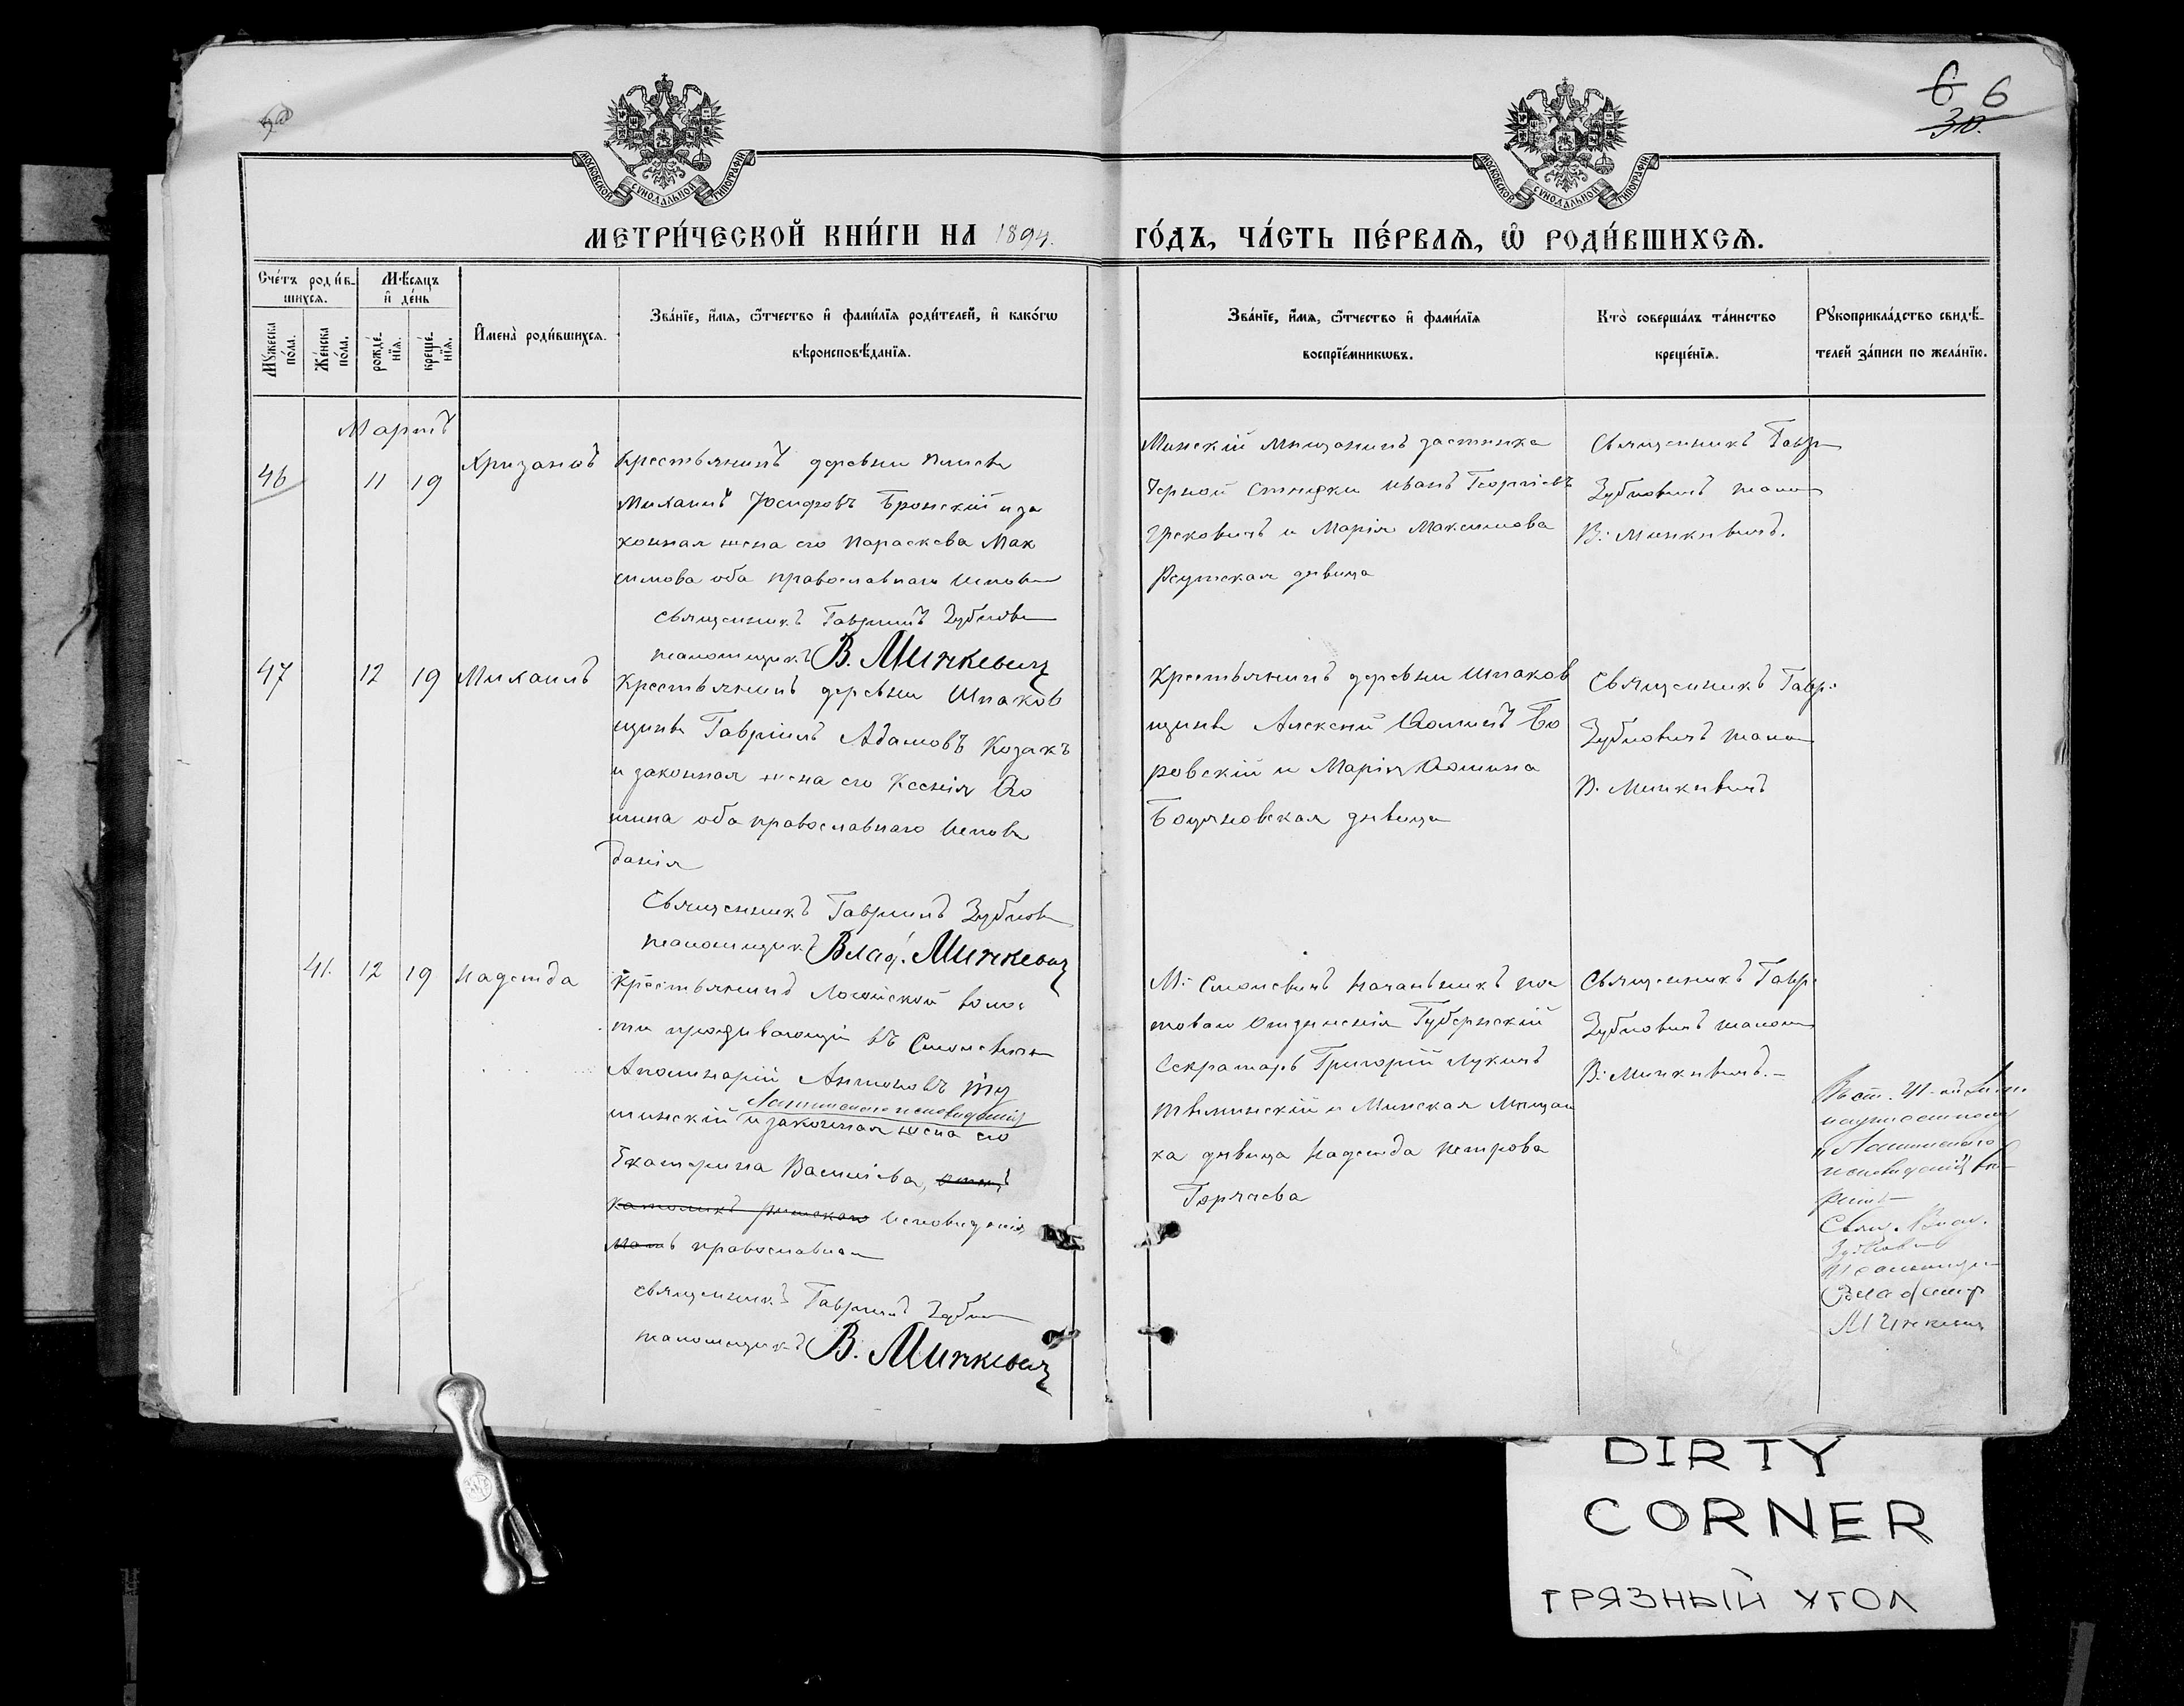 6 6
30.
МОСКОВСКОЙ СУНОДАЛЬНОЙ ТИПОГРАФІИ
МОСКОВСКОЙ СУНОДАЛЬНОЙ ТИПОГРАФІИ
МЕТРИ́ЧЕСКОЙ КНИ́ГИ НА 1894.
ГО́ДЪ, ЧА́СТЬ ПЕ́РВАЯ, Ѽ РОДИ́ВШИХСЯ.
Сче́тъ роди́в-
шихся.
Мꙋжеска
пола.
Же́нска
по́ла.
Мѣ́сяцъ
и҆ де́нь
рожде́-
нїя.
креще́-
нїя.
И҆мена̀ роди́вшихся.
Зва́нїе, и҆́мя, ѻ҆́тчество и҆ фами́лїя роди́телей, и҆ како́гѡ
вѣроисповѣ́данїя.
Зва́нїе, и҆́мя, ѻ҆́тчество и҆ фами́лїя
воспрїе́мникѡвъ.
Кто̀ соверша́лъ та́инство
креще́нїя.
Рꙋкоприкла́дство свидѣ́-
телей за́писи по жела́нїю.
Мартъ
46 11 19 Хризанѳъ
Крестьянинъ деревни
Михаилъ Іосифовъ Бронскій и за
конная жена его Параскева Мак
симова оба православнаго Испов
Священникъ Гавріилъ Зубков
псаломщикъ В. Мичкевич
Минскій мѣщанинъ застѣнка
Черной Стѣнки Иванъ Георгіевъ
Грековичъ и Марія Максимова
Реутская дѣвица
Священникъ Гавр
Зубковичъ псалом
В: Мичкевичъ.
47 12 19 Михаилъ
Крестьянинъ деревни Шпаков
щины Гавріилъ Адамовъ Козакъ
и законная жена его Ксенія Ѳо
мина оба православнаго Испов
данія
Священникъ Гавріилъ Зубков
псаломщикъ Влад. Мичкевич
Крестьянинъ деревни Шпаков
щины Алексѣй Ѳоминъ Бо
ровскій и Марія Ѳомина
Боуяновская дѣвица
Священникъ Гавр:
Зубковичъ псалом
В. Мичкевичъ
41. 12 19 Надежда
Крестьянинъ Логойской волос
ти проживающій въ Смолевичах
Аполинарій Антоновъ Ту
Латинскаго исповѣданія
шинскій и законная жена его
Екатерина Васильева, отецъ
католикъ римскаго Исповѣданія,
мать православнаг
священникъ Гавріилъ Зубк
псаломщикъ В. Мичкевич
М: Смолевичъ Начальникъ поч
товаго Отдѣленія Губернскій
Секретарь Григорій Лукичъ
Твѣлинскій и Минская Мѣщан
ка дѣвица Надежда Петрова
Горячева
Священникъ Гавр:
Зубковичъ псалом
В: Мичкевичъ.-
надписанному
"Латинскаго
исповѣданія" вѣ
рить
Свящ.
Зубкович
Псаломщик
Владимир
Мичкевич
DIRTY
CORNER
ГРЯЗНЫЙ УГОЛ